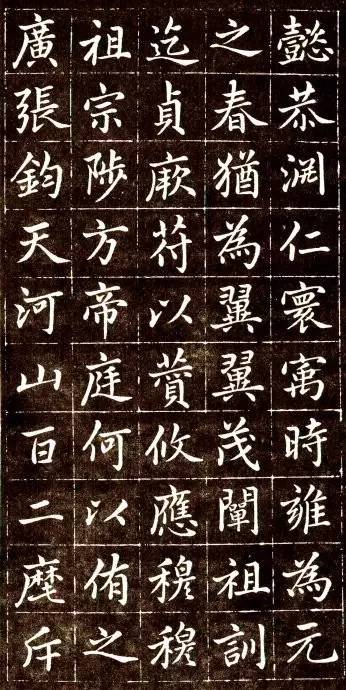 懿恭淵仁寰寓時雍為元
之春猶為翼翼茂闡祖訓
迄貞厥苻以攸應穆穆
祖宗陟方帝庭何以侑之
廣張鈞天河山百二麾斥